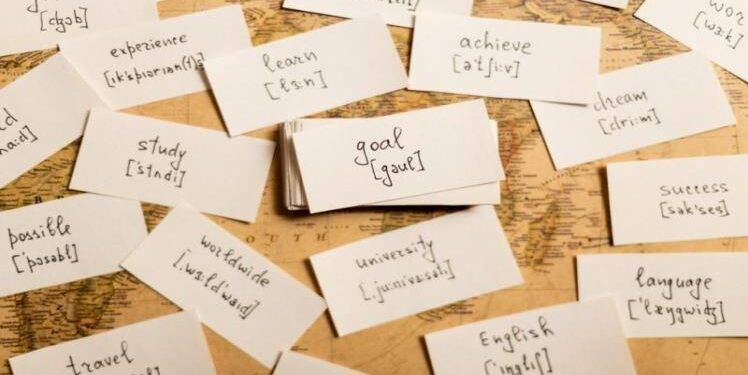 [dʒɔb]
experience
[ɪk'spɪərɪən(t)s]
learn
[lɜ:n]
achieve
[ə'tʃi:v]
[wɜ:k]
dream
[dri:m]
study
['stʌdi]
goal
[gəʊl]
success
[sək'ses]
possible
['pɒsəbl]
worldwide
[ˌwɜ:ld'waɪd]
university
[ˌju:nɪvɜ:sətɪ]
language
['læŋgwɪdʒ]
travel
English
['ɪŋglɪʃ]